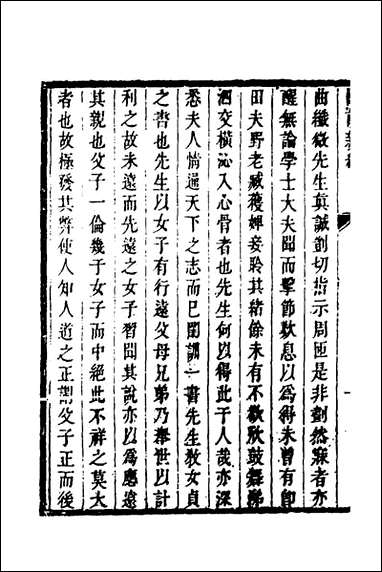 曲纖微先生真誠剴切指示周匝是非劃然寐者亦
醒無論學士大夫聞而擊節歎息以為得未曾有即
田夫野老臧獲婢妾聆其緒餘未有不歡欣鼓舞涕
泗交橫沁入心骨者也先生何以得此于人哉亦深
悉夫人情通天下之志而已閨訓一書先生教女貞
之書也先生以女子有行遠父母兄弟乃舉世以計
利之故未遠而先遠之女子習聞其說亦以為應遠
其親也父子一倫幾于女子而中絕此不祥之莫大
者也故極發其弊使人知人道之正謂父子正而後